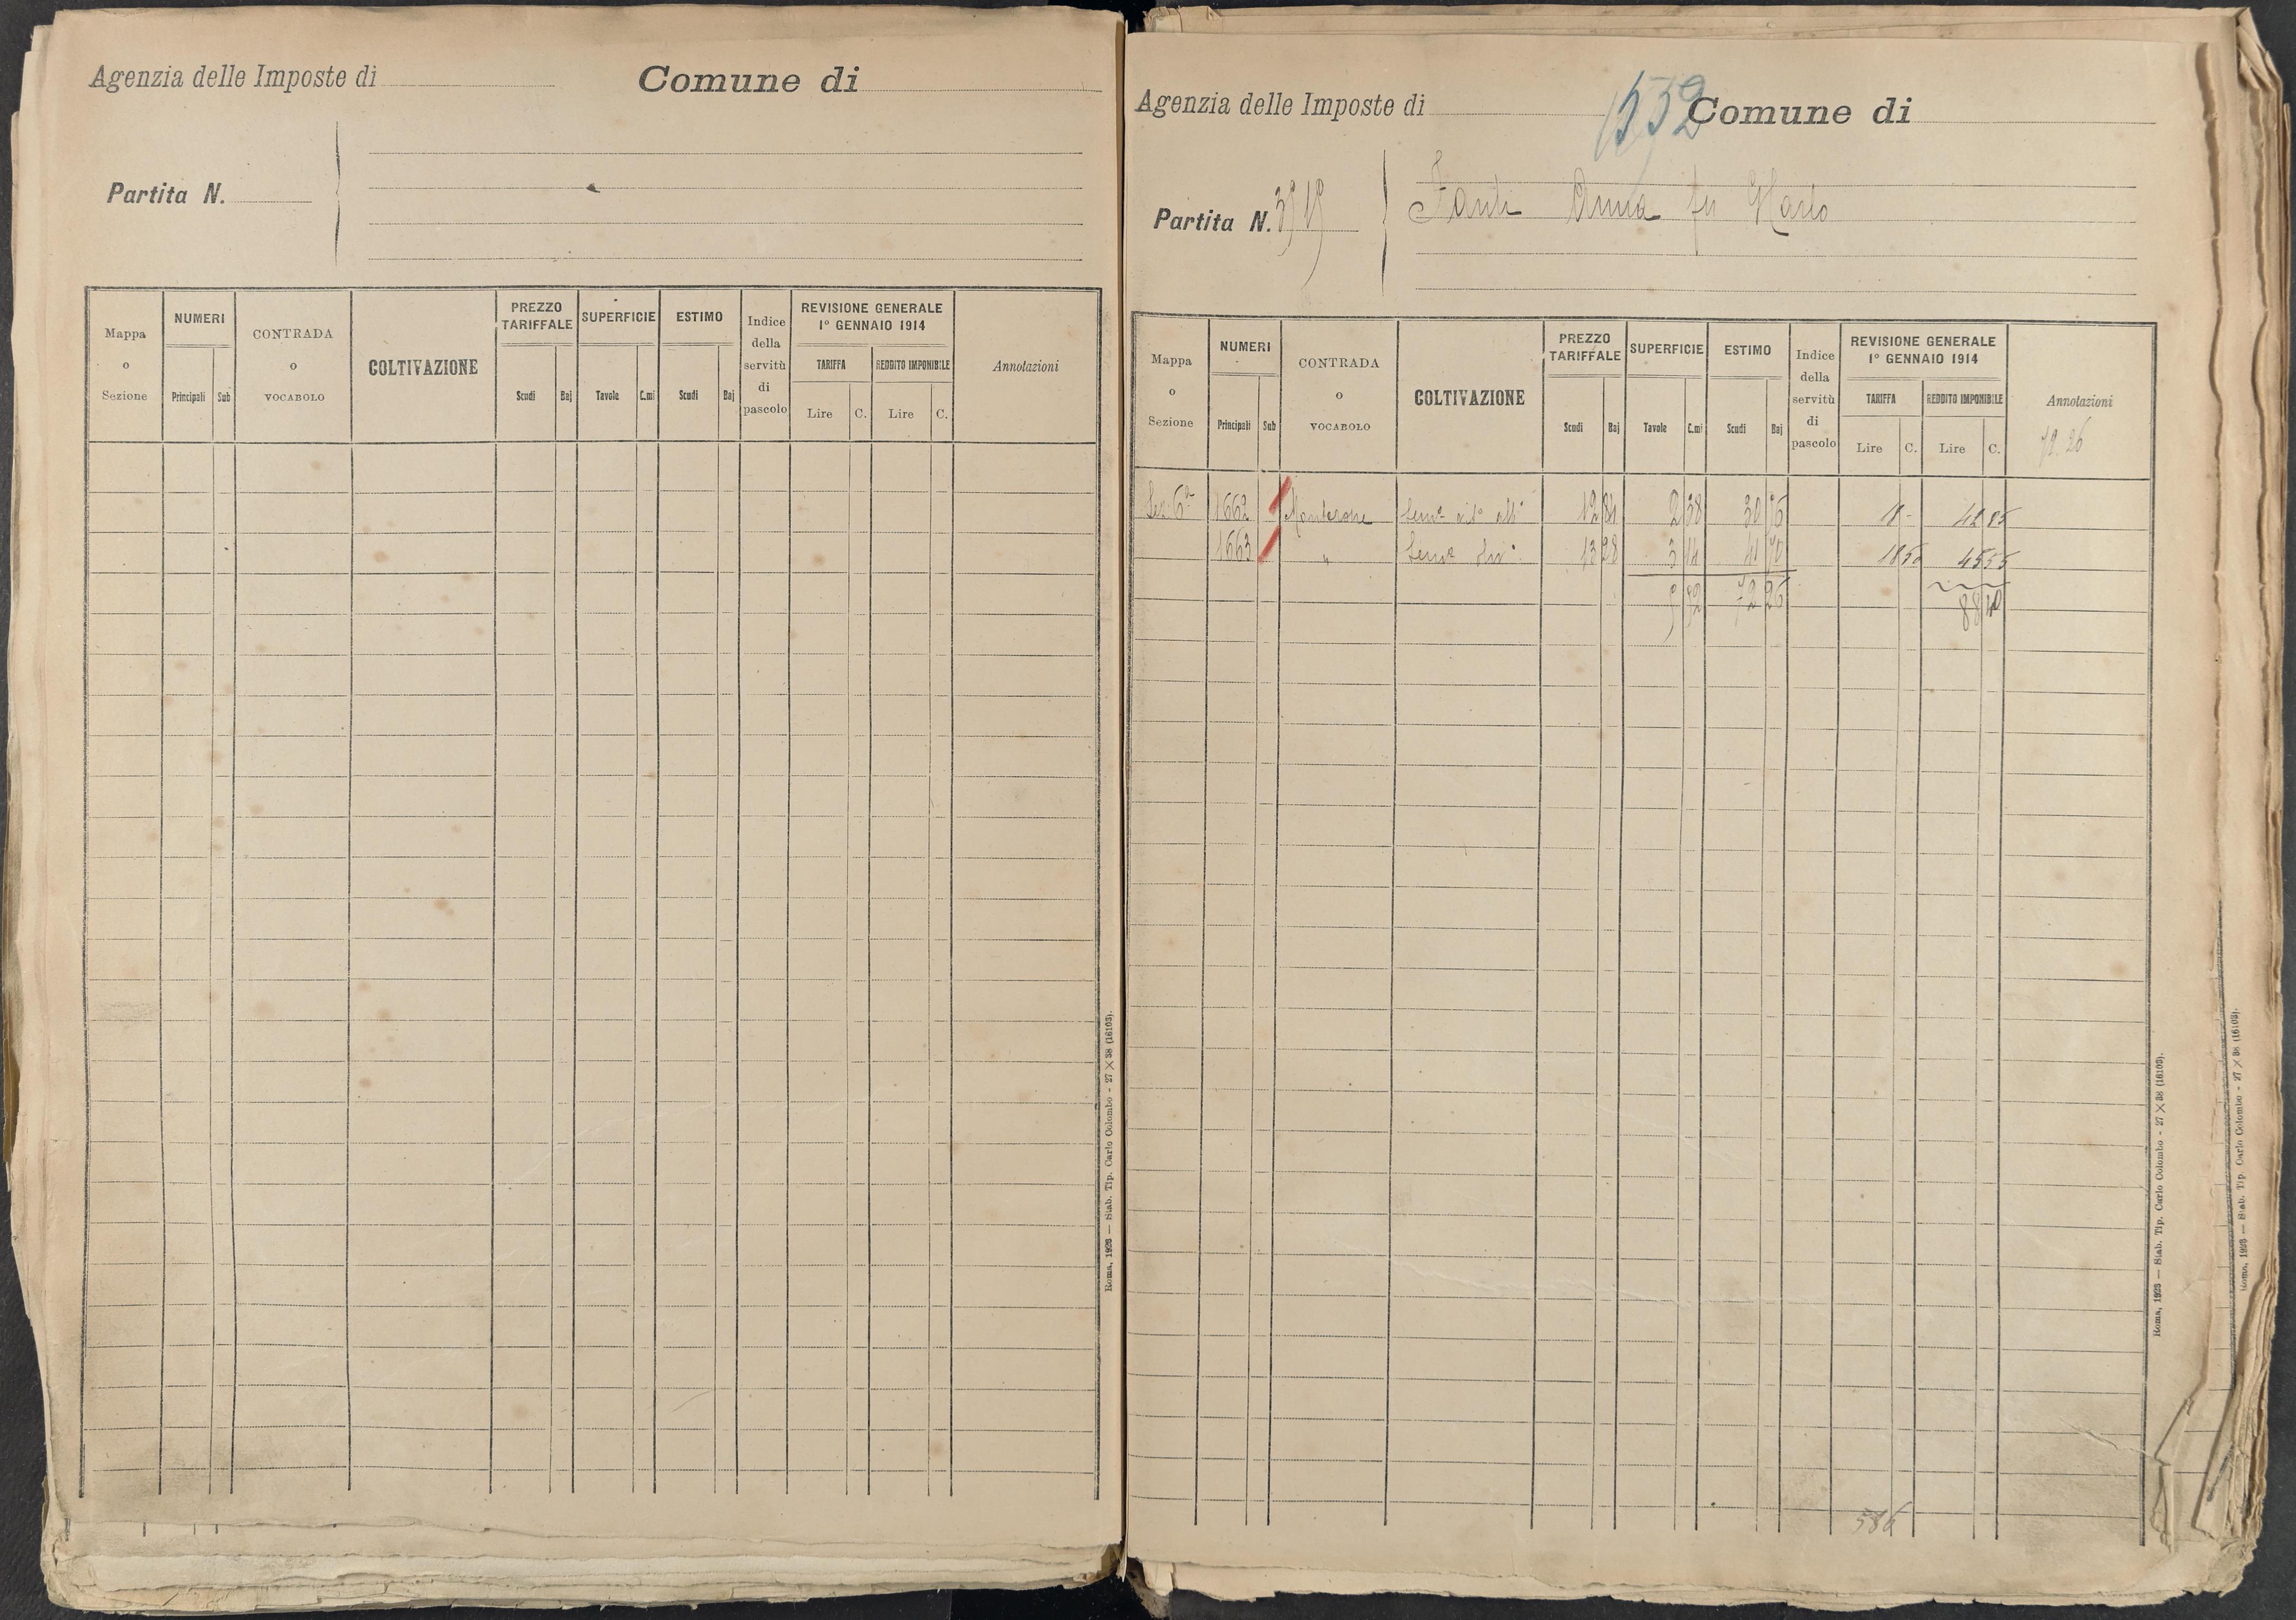 Agenzia delle Imposte di
Comune di
Partita N.
Mappa o Sezione
NUMERI
Principali
Sub
CONTRADA o VOCABOLO
COLTIVAZIONE
PREZZO TARIFFALE
Scudi
Baj
SUPERFICIE
Tavole
C.mi
ESTIMO
Scudi
Baj
Indice della servitù di pascolo
REVISIONE GENERALE
1° GENNAIO 1914
TARIFFA
REDDITO IMPONIBILE
Lire
C.
Lire
C.
Annotazioni
Roma, 1923 — Stab. Tip. Carlo Colombo - 27 × 38 (16103).
Agenzia delle Imposte di
1532
Comune di
Partita N.
Fanti Anna fu Carlo
Mappa o Sezione
NUMERI
Principali
Sub
CONTRADA o VOCABOLO
COLTIVAZIONE
PREZZO TARIFFALE
Scudi
Baj
SUPERFICIE
Tavole
C.mi
ESTIMO
Scudi
Baj
Indice della servitù di pascolo
REVISIONE GENERALE
1° GENNAIO 1914
TARIFFA
REDDITO IMPONIBILE
Lire
C.
Lire
C.
Annotazioni
72.26
Sez. 6a 1662 2 38 30 56 18 - 42 85
1663 " 13 28 3 14 41 70 18 50 45 55
5 52 72 26
88 40
586
Roma, 1923 — Stab. Tip. Carlo Colombo - 27 × 38 (16103).
Roma, 1923 — Stab. Tip. Carlo Colombo - 27 × 38 (16103).